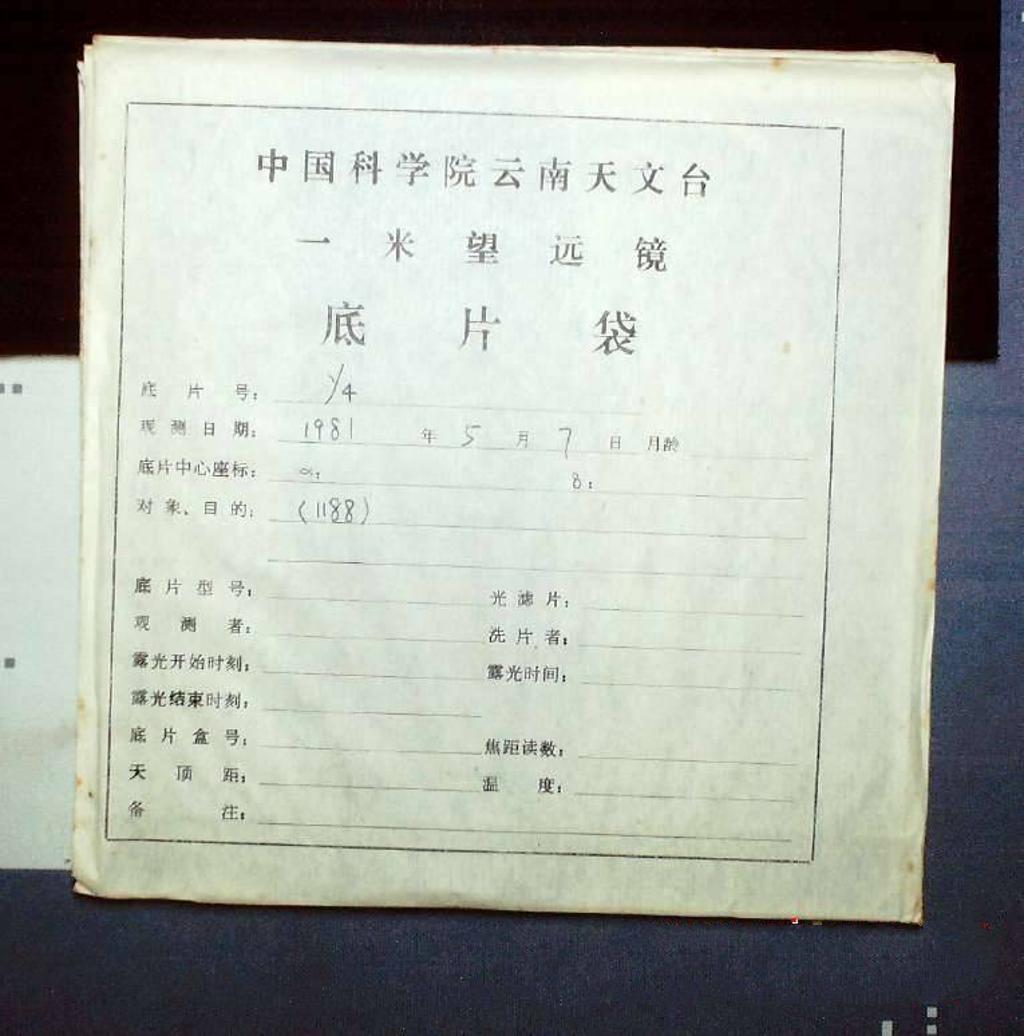 中国科学院云南天文台
一米望远镜
底片袋
底片号: Y4
观测日期: 1981 年 5 月 7 日 月龄
底片中心座标: α: δ:
对象、目的: (1188)
底片型号: 光滤片:
观测者: 洗片者:
露光开始时刻: 露光时间:
露光结束时刻:
底片盒号: 焦距读数:
天顶距: 温度:
备注: